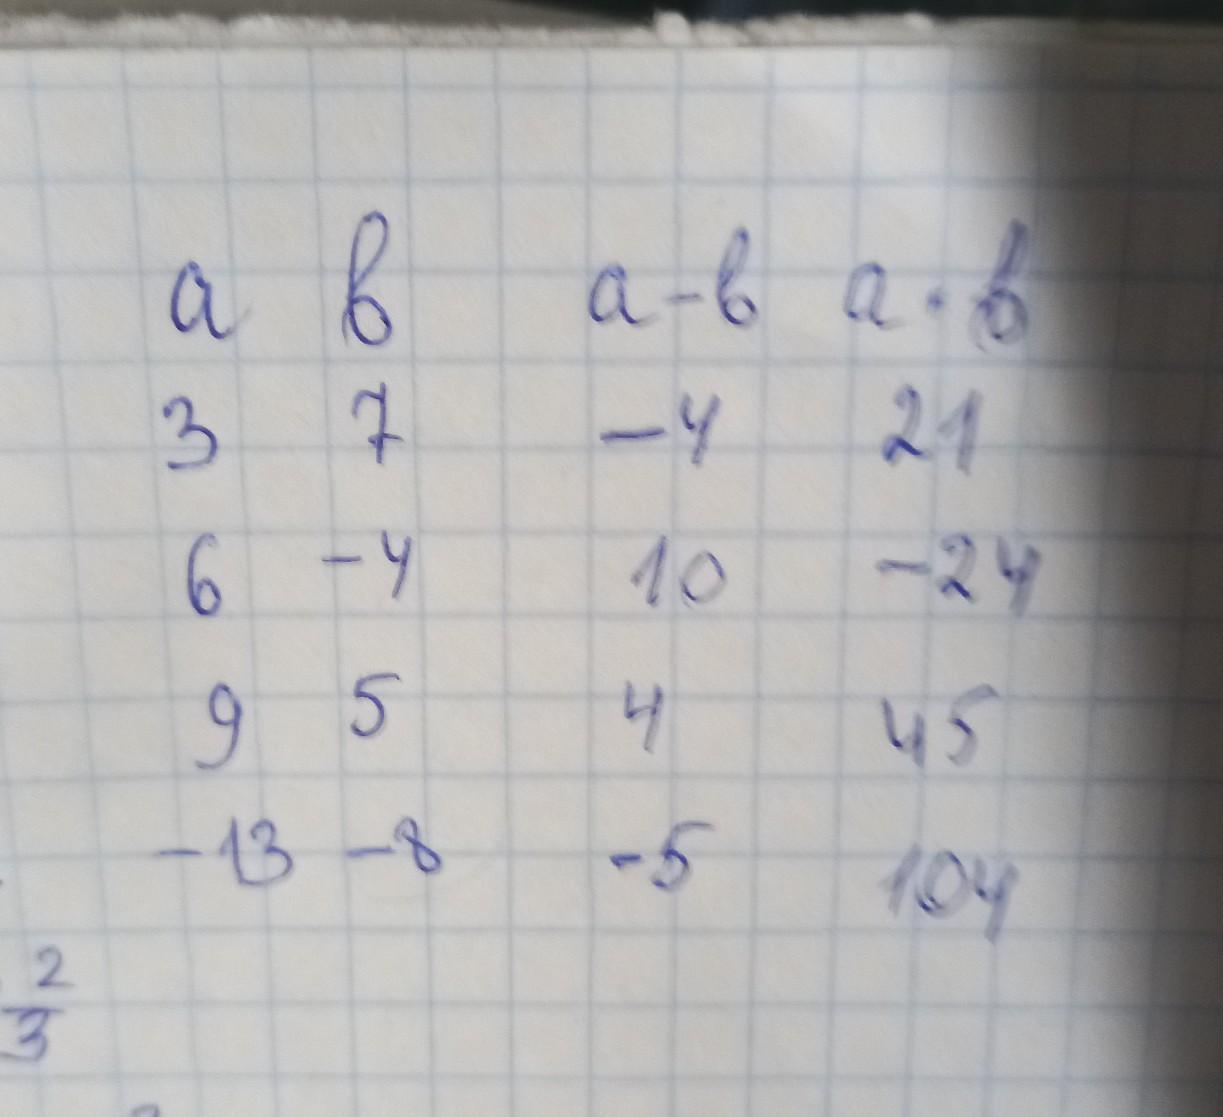 а в а-в а·в
3 7 -4 21
6 -4 10 -24
9 5 4 45
-13 -8 -5 104
2
3